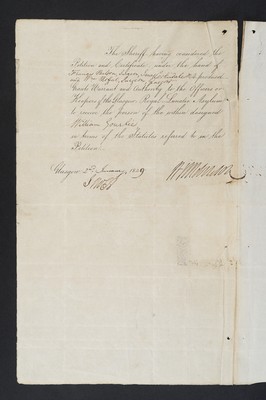 The Sheriff having considered the
Petition and Certificate under the hand of
Surgeon
Grants Warrant and Authority to the Officers or
Keepers of the Glasgow Royal Lunatic Asylum
to receive the person of the within designed
William
in terms of the Statutes referred to in the
Petition.
Glasgow 2d January 1829